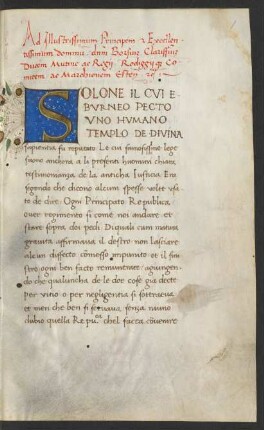 Ad Illustrissimum Principem & Excellen-
tissimum dominum dnm Borsium
Ducem Mutine ac Regij
Comitem ac Marchionem
SOLONE IL CVI E
BVRNEO PECTO
VNO HVMANO
TEMPLO DE DIVINA
sapientia fu reputato Le cui sanctissime lege
anchora a li presenti huomini chiara
testimonanza de la anticha Iustitia Era
segondo che dicono alcuni spesse volte usa-
to de dire. Ogni Principato Republica
over regimento si come noi andare et
stare sopra doi piedi. Di quali cum matura
gravita affirmava il destro non lassiare
alcun diffecto comesso impunito et il sini
stro ogni ben facto remunerare agiungen-
do che qualuncha de le doe cose gia decte
per vitio o per negligentia si sotrheva
et men che ben si servava, senza niuno
dubio quella Repu. chel facea convenire